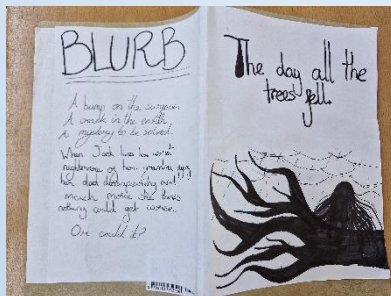 BLURB
A bump on the surgeon
A crack in the earth
A mystery to be solved.
When Jack lives his worst
nightmare of her
her dad disappearing and
much more she thinks
nothing could get worse.
Or could it?
The day all the
trees fell.